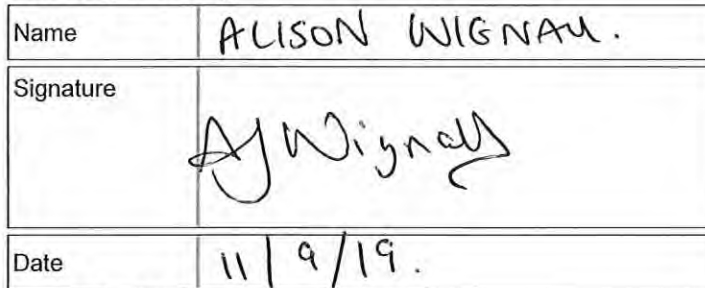 Name ALISON WIGNALL.
Signature AJ Wignall
Date 11/9/19.